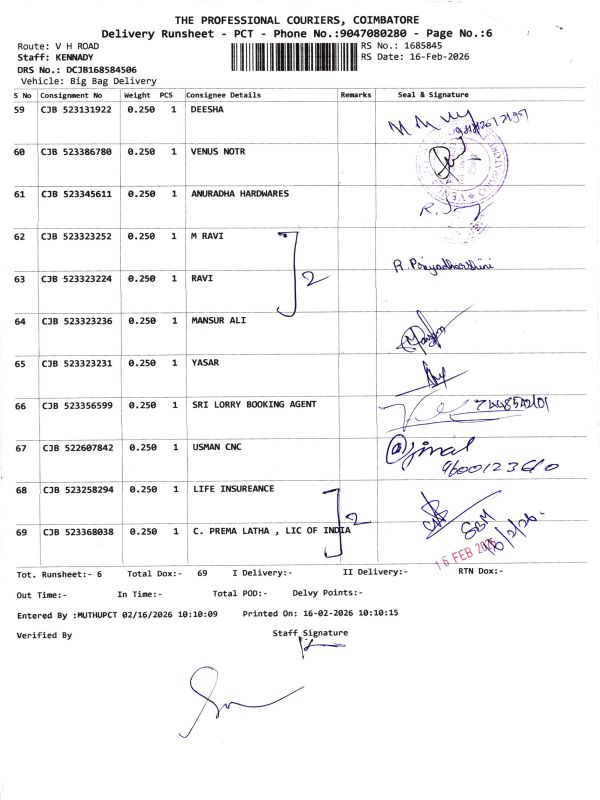 THE PROFESSIONAL COURIERS, COIMBATORE
Delivery Runsheet - PCT - Phone No.:9047080280 - Page No.:6
Route: V H ROAD
RS No.: 1685845
Staff: KENNADY
RS Date: 16-Feb-2026
DRS No.: DCJB168584506
Vehicle: Big Bag Delivery
S No Consignment No Weight PCS Consignee Details Remarks Seal & Signature
59 CJB 523131922 0.250 1 DEESHA
60 CJB 523386780 0.250 1 VENUS NOTR
61 CJB 523345611 0.250 1 ANURADHA HARDWARES
62 CJB 523323252 0.250 1 M RAVI
2
R. Priyadharshini
63 CJB 523323224 0.250 1 RAVI
64 CJB 523323236 0.250 1 MANSUR ALI
65 CJB 523323231 0.250 1 YASAR
66 CJB 523356599 0.250 1 SRI LORRY BOOKING AGENT
67 CJB 522607842 0.250 1 USMAN CNC
68 CJB 523258294 0.250 1 LIFE INSUREANCE
2
SBM
69 CJB 523368038 0.250 1 C. PREMA LATHA , LIC OF INDIA
16/2/26
16 FEB 2026
Tot. Runsheet:- 6 Total Dox:- 69 I Delivery:- II Delivery:- RTN Dox:-
Out Time:- In Time:- Total POD:- Delvy Points:-
Entered By :MUTHUPCT 02/16/2026 10:10:09 Printed On: 16-02-2026 10:10:15
Verified By Staff Signature